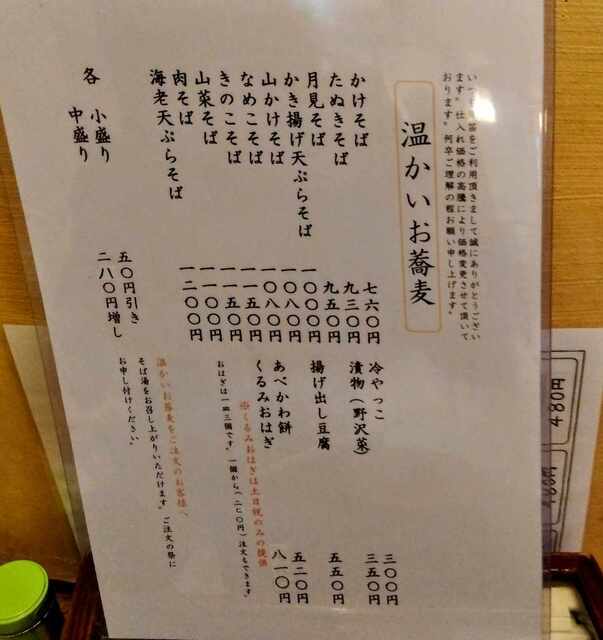 ご利用頂きまして誠にありがとうござい
ます。仕入れ価格の高騰により価格変更させて頂いて
おります。何卒ご理解の程お願い申し上げます。
温かいお蕎麦
かけそば 七六〇円
たぬきそば 九三〇円
月見そば 九五〇円
かき揚げ天ぷらそば 一〇〇〇円
山かけそば 一〇八〇円
なめこそば 一〇八〇円
きのこそば 一一五〇円
山菜そば 一一五〇円
肉そば 一一〇〇円
海老天ぷらそば 一二〇〇円
各 小盛り 五〇円引き
中盛り 二八〇円増し
冷やっこ 三〇〇円
漬物(野沢菜) 三五〇円
揚げ出し豆腐 五五〇円
あべかわ餅 五二〇円
くるみおはぎ 八一〇円
※くるみおはぎは土日祝のみの提供
おはぎは一皿三個です。一個から(二七〇円)注文もできます。
温かいお蕎麦をご注文のお客様へ
そば湯をお召し上がりいただけます。ご注文の祭に
お申し付けください。
480円